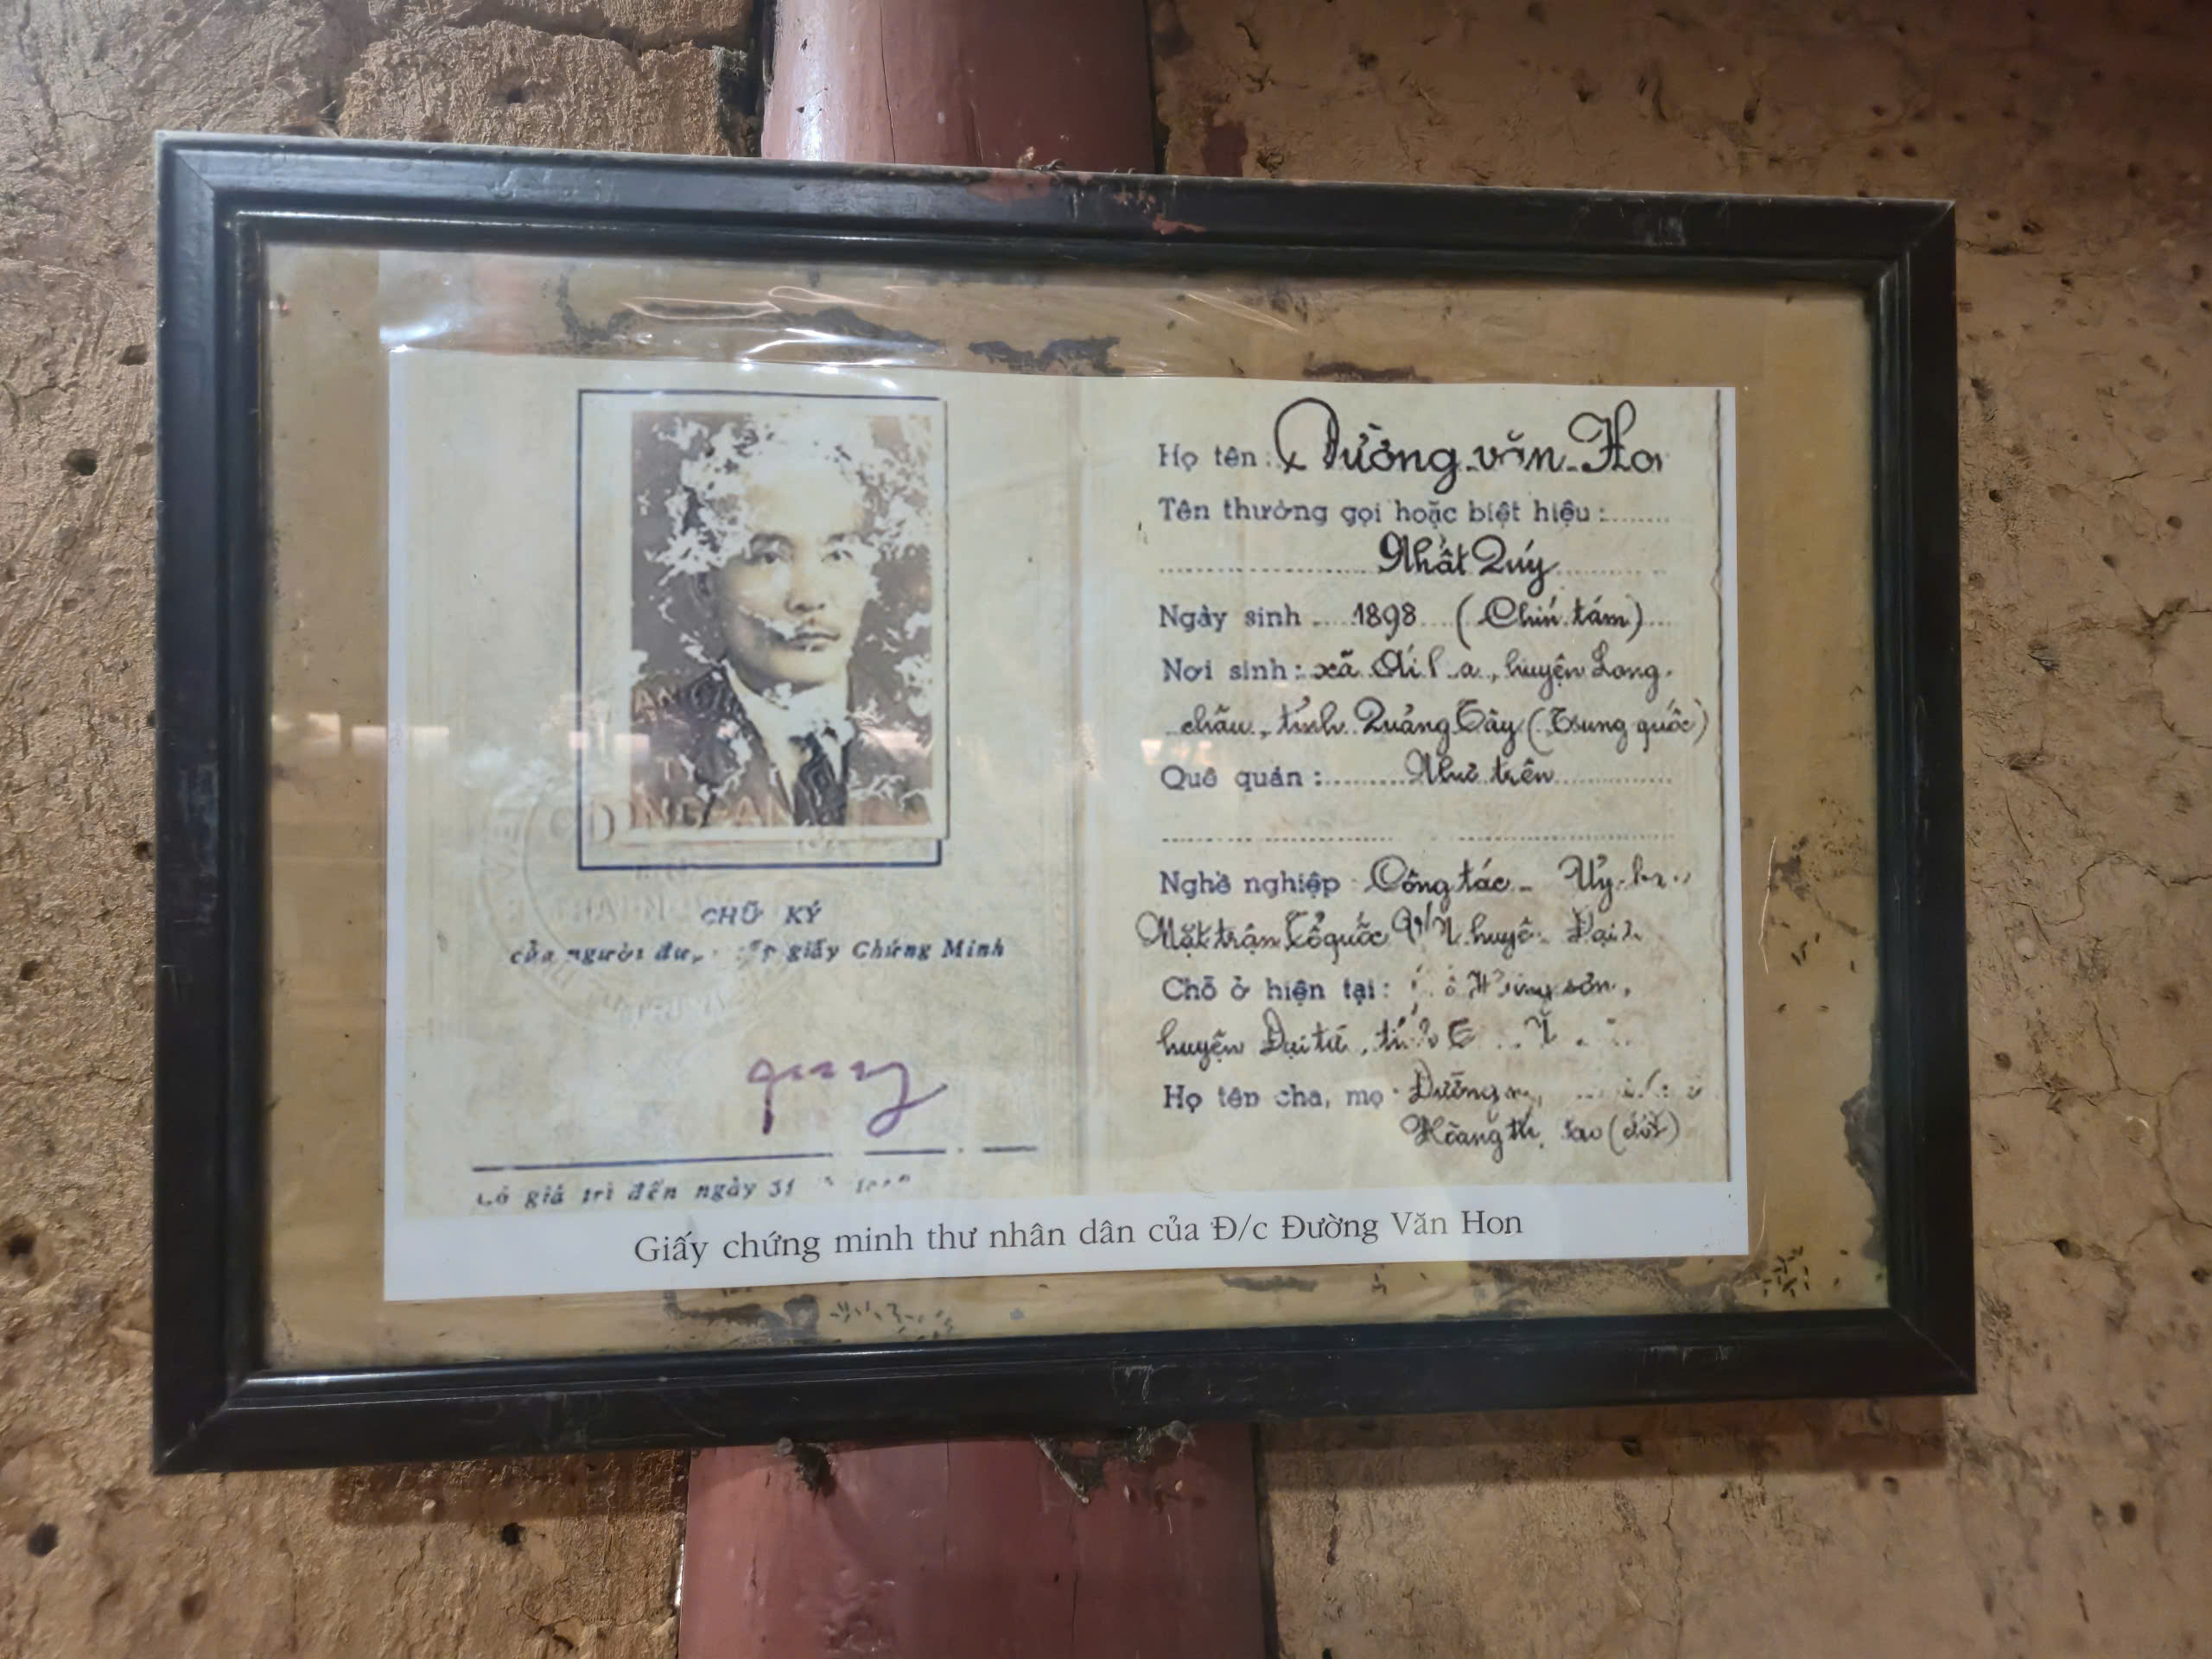 CÔNG AN
CHỮ KÝ
của người giấy Chứng Minh
quy
Có giá trị đến ngày 31
Họ tên: Đường văn Ho
Tên thường gọi hoặc biệt hiệu:
Nhất Quý
Ngày sinh 1898 (Chín tám)
Nơi sinh: xã huyện Long
châu, tỉnh Quảng Tây (Trung quốc)
Quê quán: Như trên
Nghề nghiệp Công tác Ủy
Mặt trận Tổ quốc VN Đại
Chỗ ở hiện tại: sơn,
huyện Đại từ,
Họ tên cha, mẹ Đường
Hoàng thị
Giấy chứng minh thư nhân dân của Đ/c Đường Văn Hon